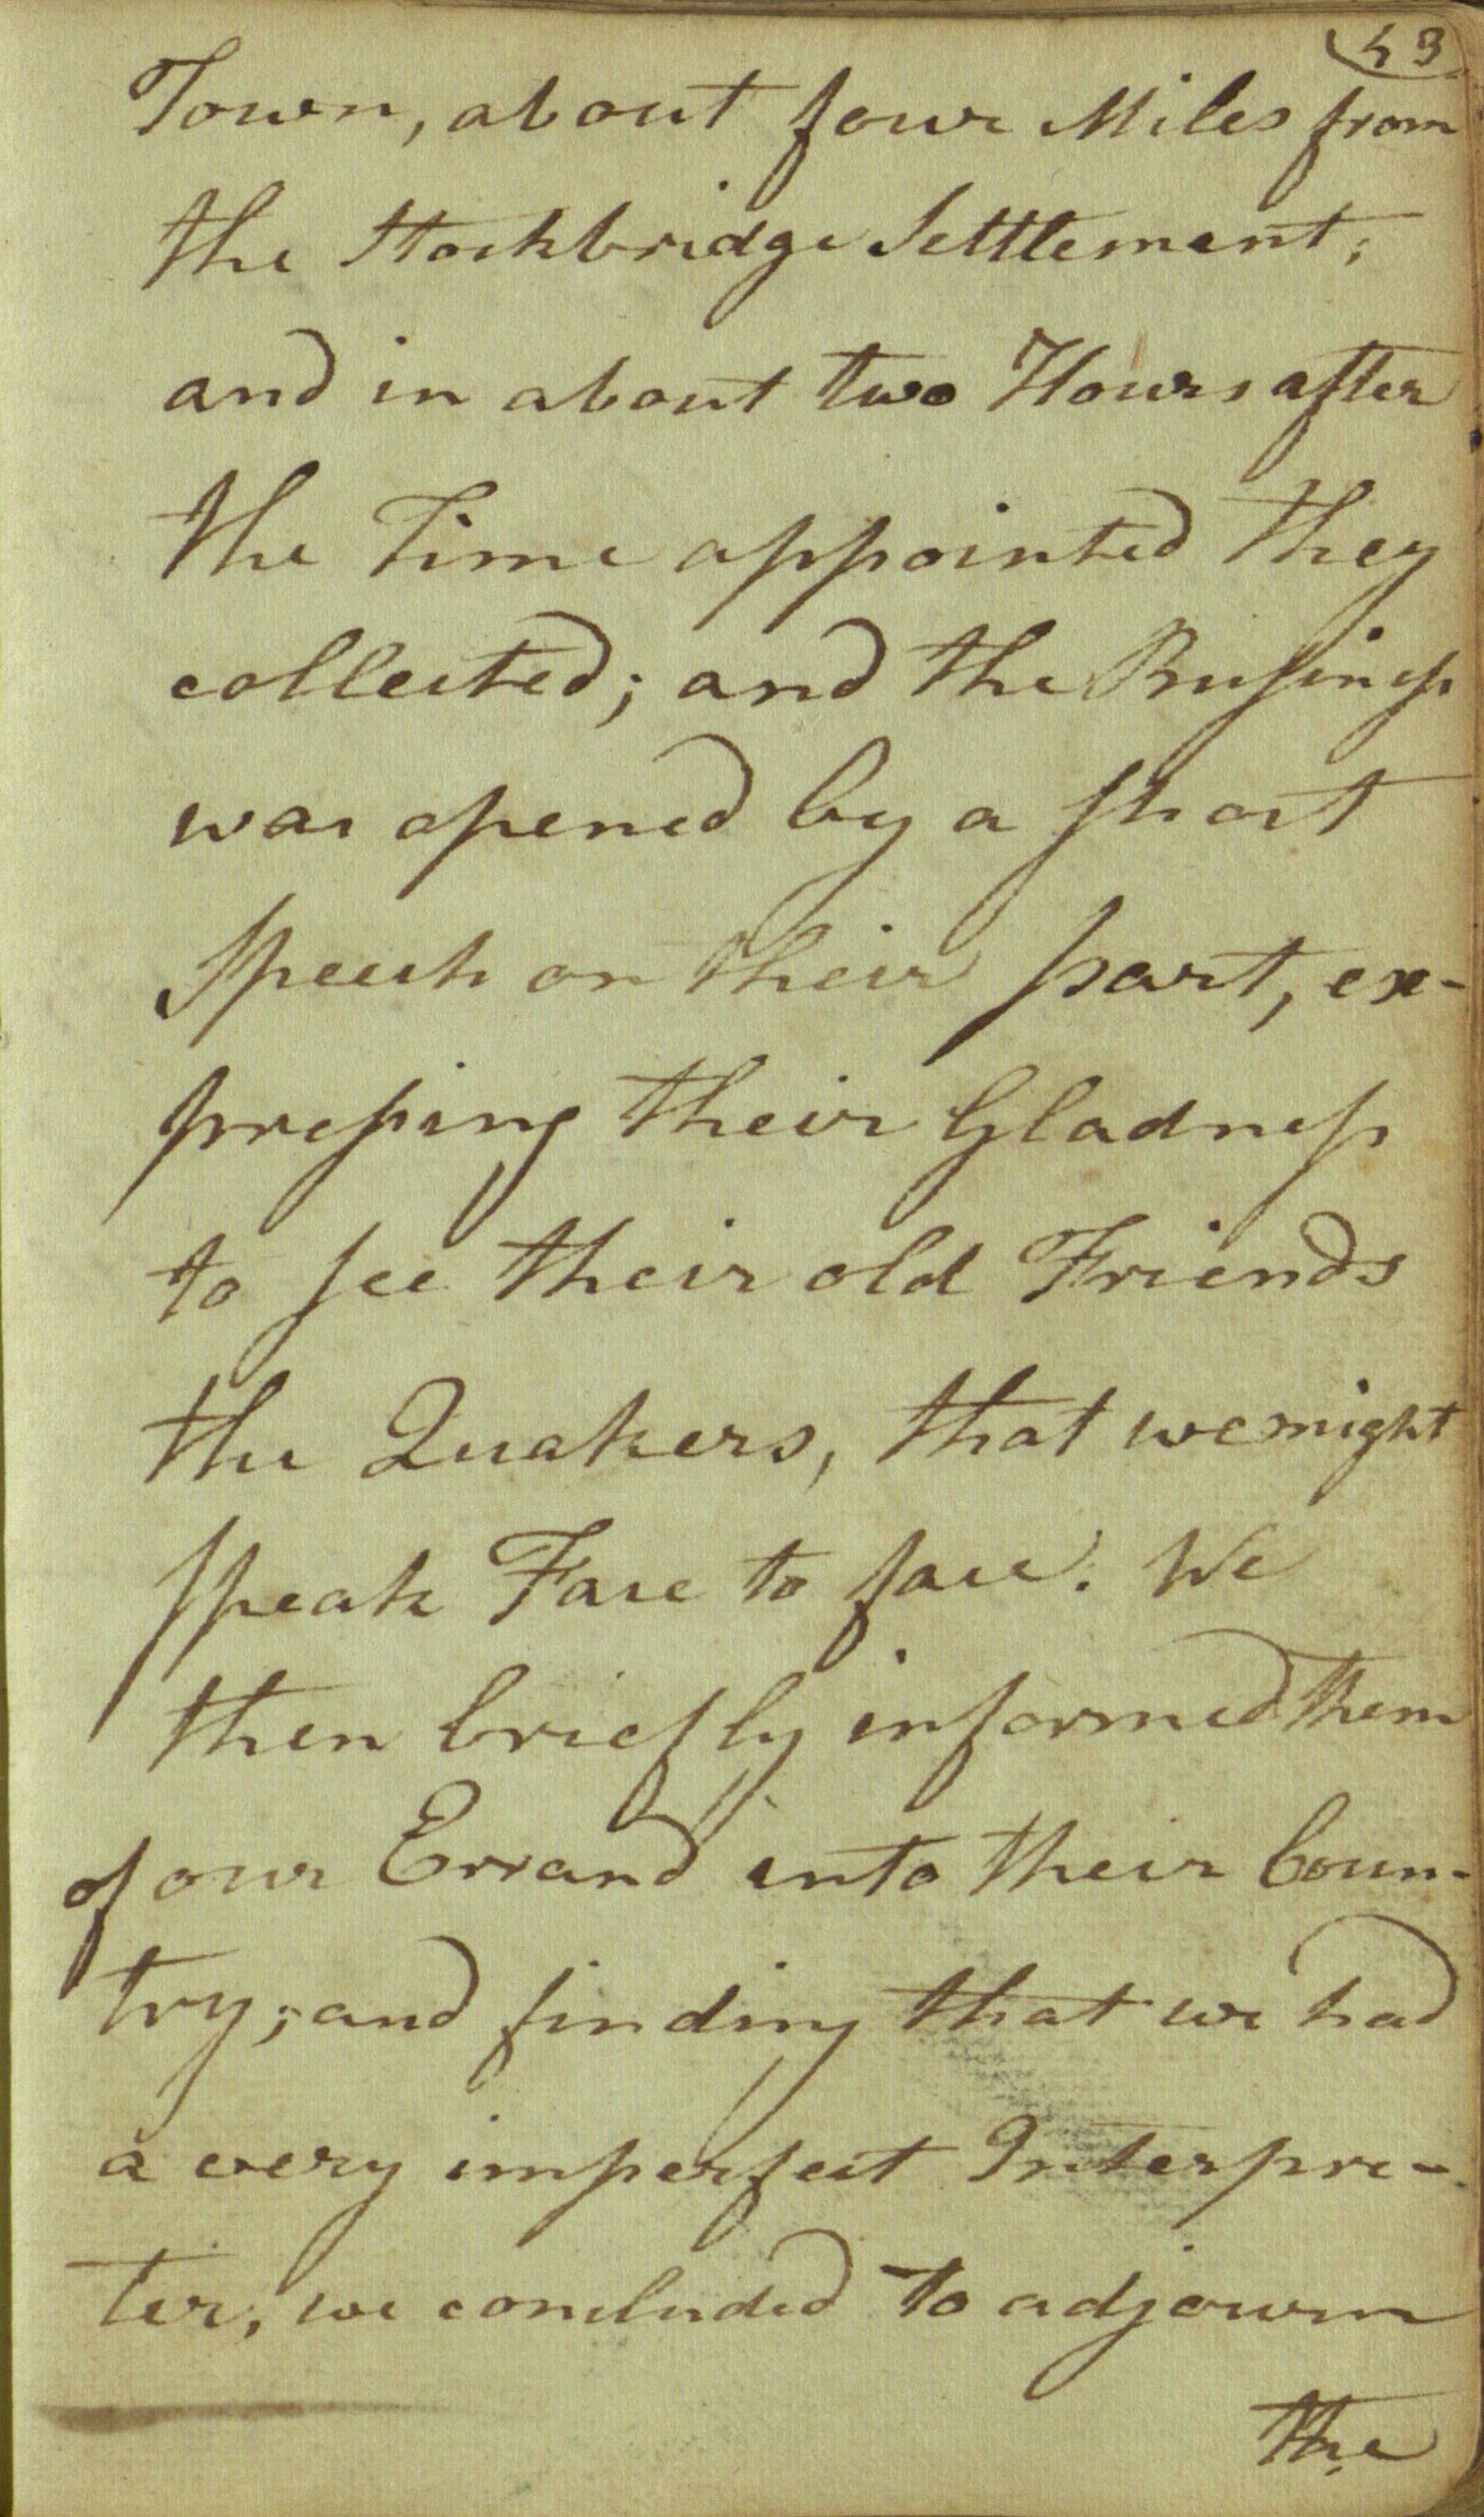 43
Town, about four Miles from
the Stockbridge Settlement;
and in about two Hours after
the Time appointed they
collected; and the Busineſs
was opened by a ſhort
Speech on their part, ex-
preſsing their Gladneſs
to ſee their old Friends
the Quakers, that we might
ſpeak Face to face. We
then briefly informed them
of our Errand into their Coun-
try; and finding that we had
a very imperfect Interpre-
ter, we concluded to adjourn
the